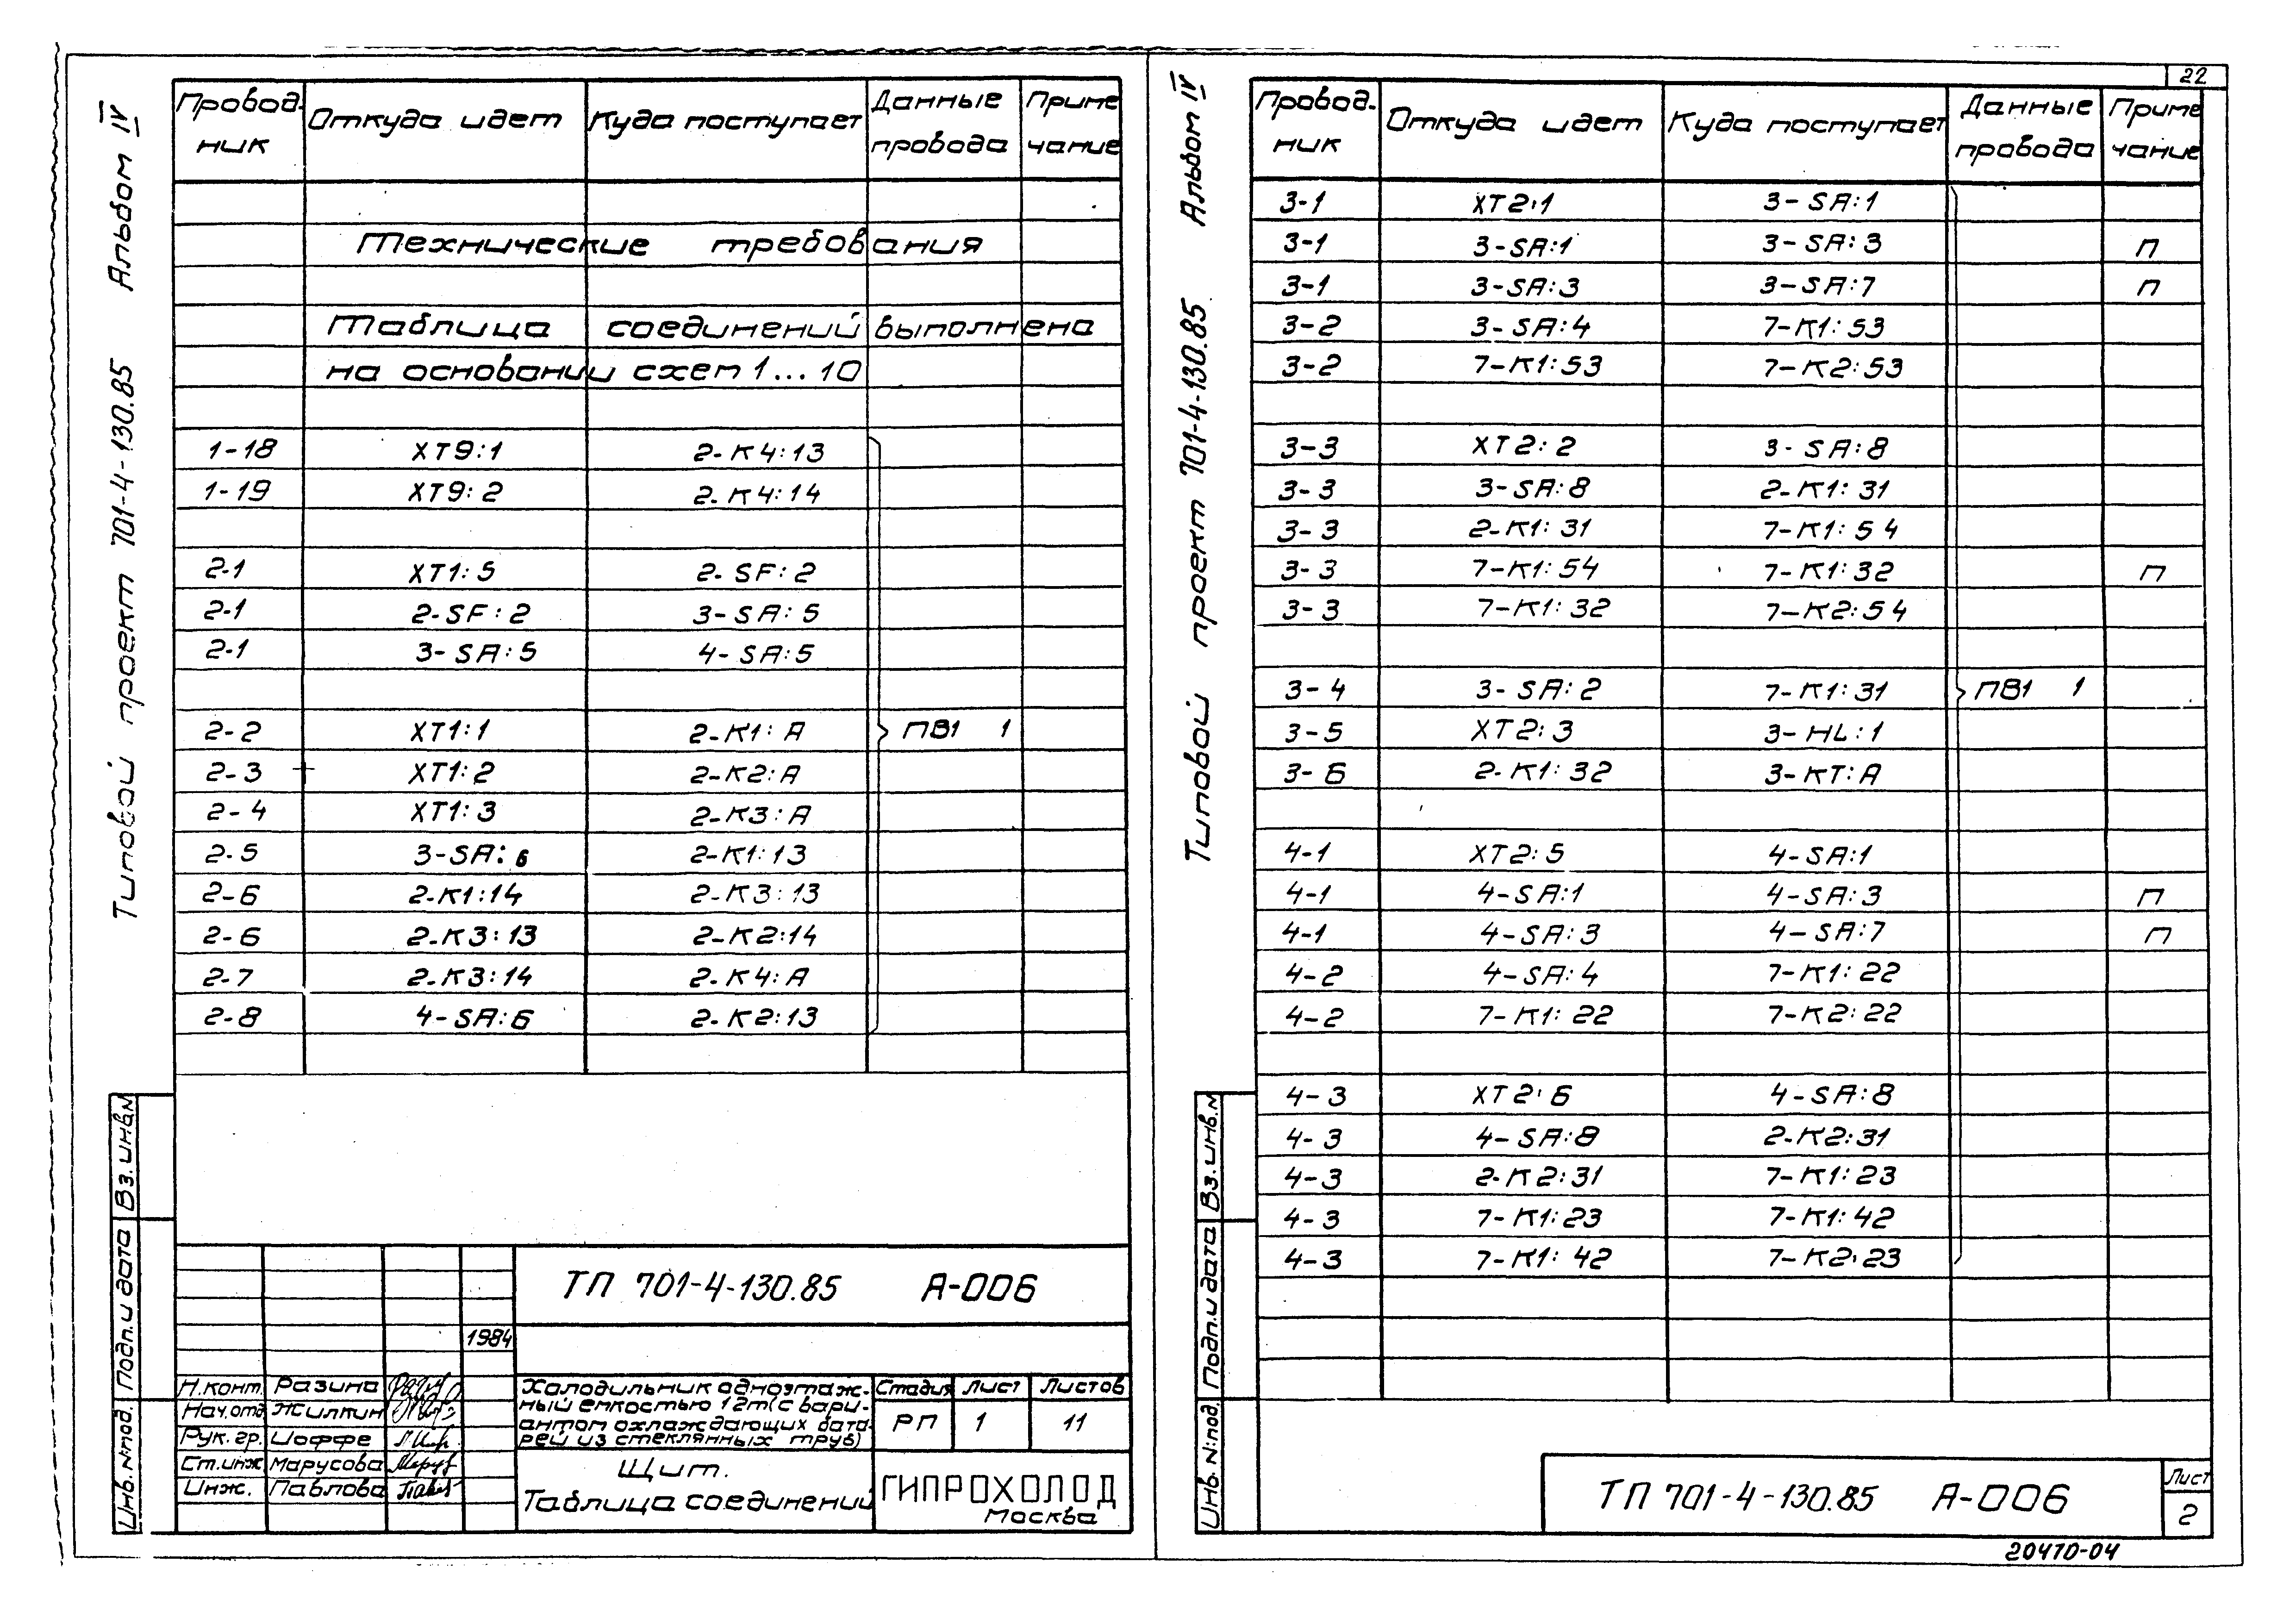 22
Альбом IV
Типовой проект 701-4-130.85
Провод- Откуда идет Куда поступает Данные Приме
ник провода чание
Технические требования
Таблица соединений выполнена
на основании схем 1...10
1-18 XT9:1 2-К4:13
1-19 XT9:2 2-К4:14
2-1 XT1:5 2-SF:2
2-1 2-SF:2 3-SA:5
2-1 3-SA:5 4-SA:5
2-2 XT1:1 2-К1:А ПВ1 1
2-3 XT1:2 2-К2:А
2-4 XT1:3 2-К3:А
2-5 3-SA:6 2-К1:13
2-6 2-К1:14 2-К3:13
2-6 2-К3:13 2-К2:14
2-7 2-К3:14 2-К4:А
2-8 4-SA:6 2-К2:13
Вз.инв.N
Подп.и дата
Инв.Nпод.
ТП 701-4-130.85 А-006
1984
Н.конт. Разина
Нач.отд Жилкин
Рук.гр. Иоффе
Ст.инж Марусова
Инж. Павлова
Холодильник одноэтаж-
ный емкостью 12т(с вари-
антом охлаждающих бата-
рей из стеклянных труб)
Стадия Лист Листов
РП 1 11
Щит.
Таблица соединений
ГИПРОХОЛОД
Москва
Альбом IV
Типовой проект 701-4-130.85
Провод- Откуда идет Куда поступает Данные Приме
ник провода чание
3-1 XT2:1 3-SA:1
3-1 3-SA:1 3-SA:3 П
3-1 3-SA:3 3-SA:7 П
3-2 3-SA:4 7-К1:53
3-2 7-К1:53 7-К2:53
3-3 XT2:2 3-SA:8
3-3 3-SA:8 2-К1:31
3-3 2-К1:31 7-К1:54
3-3 7-К1:54 7-К1:32 П
3-3 7-К1:32 7-К2:54
3-4 3-SA:2 7-К1:31 ПВ1 1
3-5 XT2:3 3-HL:1
3-6 2-К1:32 3-КТ:А
4-1 XT2:5 4-SA:1
4-1 4-SA:1 4-SA:3 П
4-1 4-SA:3 4-SA:7 П
4-2 4-SA:4 7-К1:22
4-2 7-К1:22 7-К2:22
4-3 XT2:6 4-SA:8
4-3 4-SA:8 2-К2:31
4-3 2-К2:31 7-К1:23
4-3 7-К1:23 7-К1:42
4-3 7-К1:42 7-К2:23
Вз.инв.N
Подп.и дата
Инв.N:под.
ТП 701-4-130.85 А-006
Лист
2
20410-04